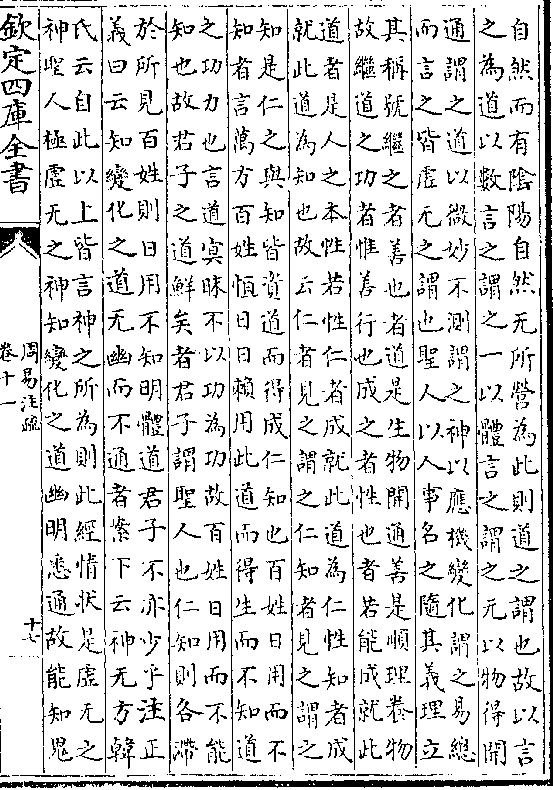 自然而有陰陽自然无所營為此則道之謂也故以言
之為道以數言之謂之一以體言之謂之无以物得開
通謂之道以微妙不測謂之神以應機變化謂之易總
而言之皆虛无之謂也聖人以人事名之隨其義理立
其稱號繼之者善也者道是生物開通善是順理養物
故繼道之功者惟善行也成之者性也者若能成就此
道者是人之本性若性仁者成就此道為仁性知者成
就此道為知也故云仁者見之謂之仁知者見之謂之
知是仁之與知皆資道而得成仁知也百姓日用而不
知者言萬方百姓恒日日賴用此道而得生而不知道
之功力也言道冥昧不以功為功故百姓日用而不能
知也故君子之道鮮矣者君子謂聖人也仁知則各滯
於所見百姓則日用不知明體道君子不亦少乎注正
義曰云知變化之道无幽而不通者案下云神无方韓
氏云自此以上皆言神之所為則此經情狀是虛无之
神聖人極虛无之神知變化之道幽明悉通故能知鬼
欽定四庫全書
周易注疏
卷十一
十七